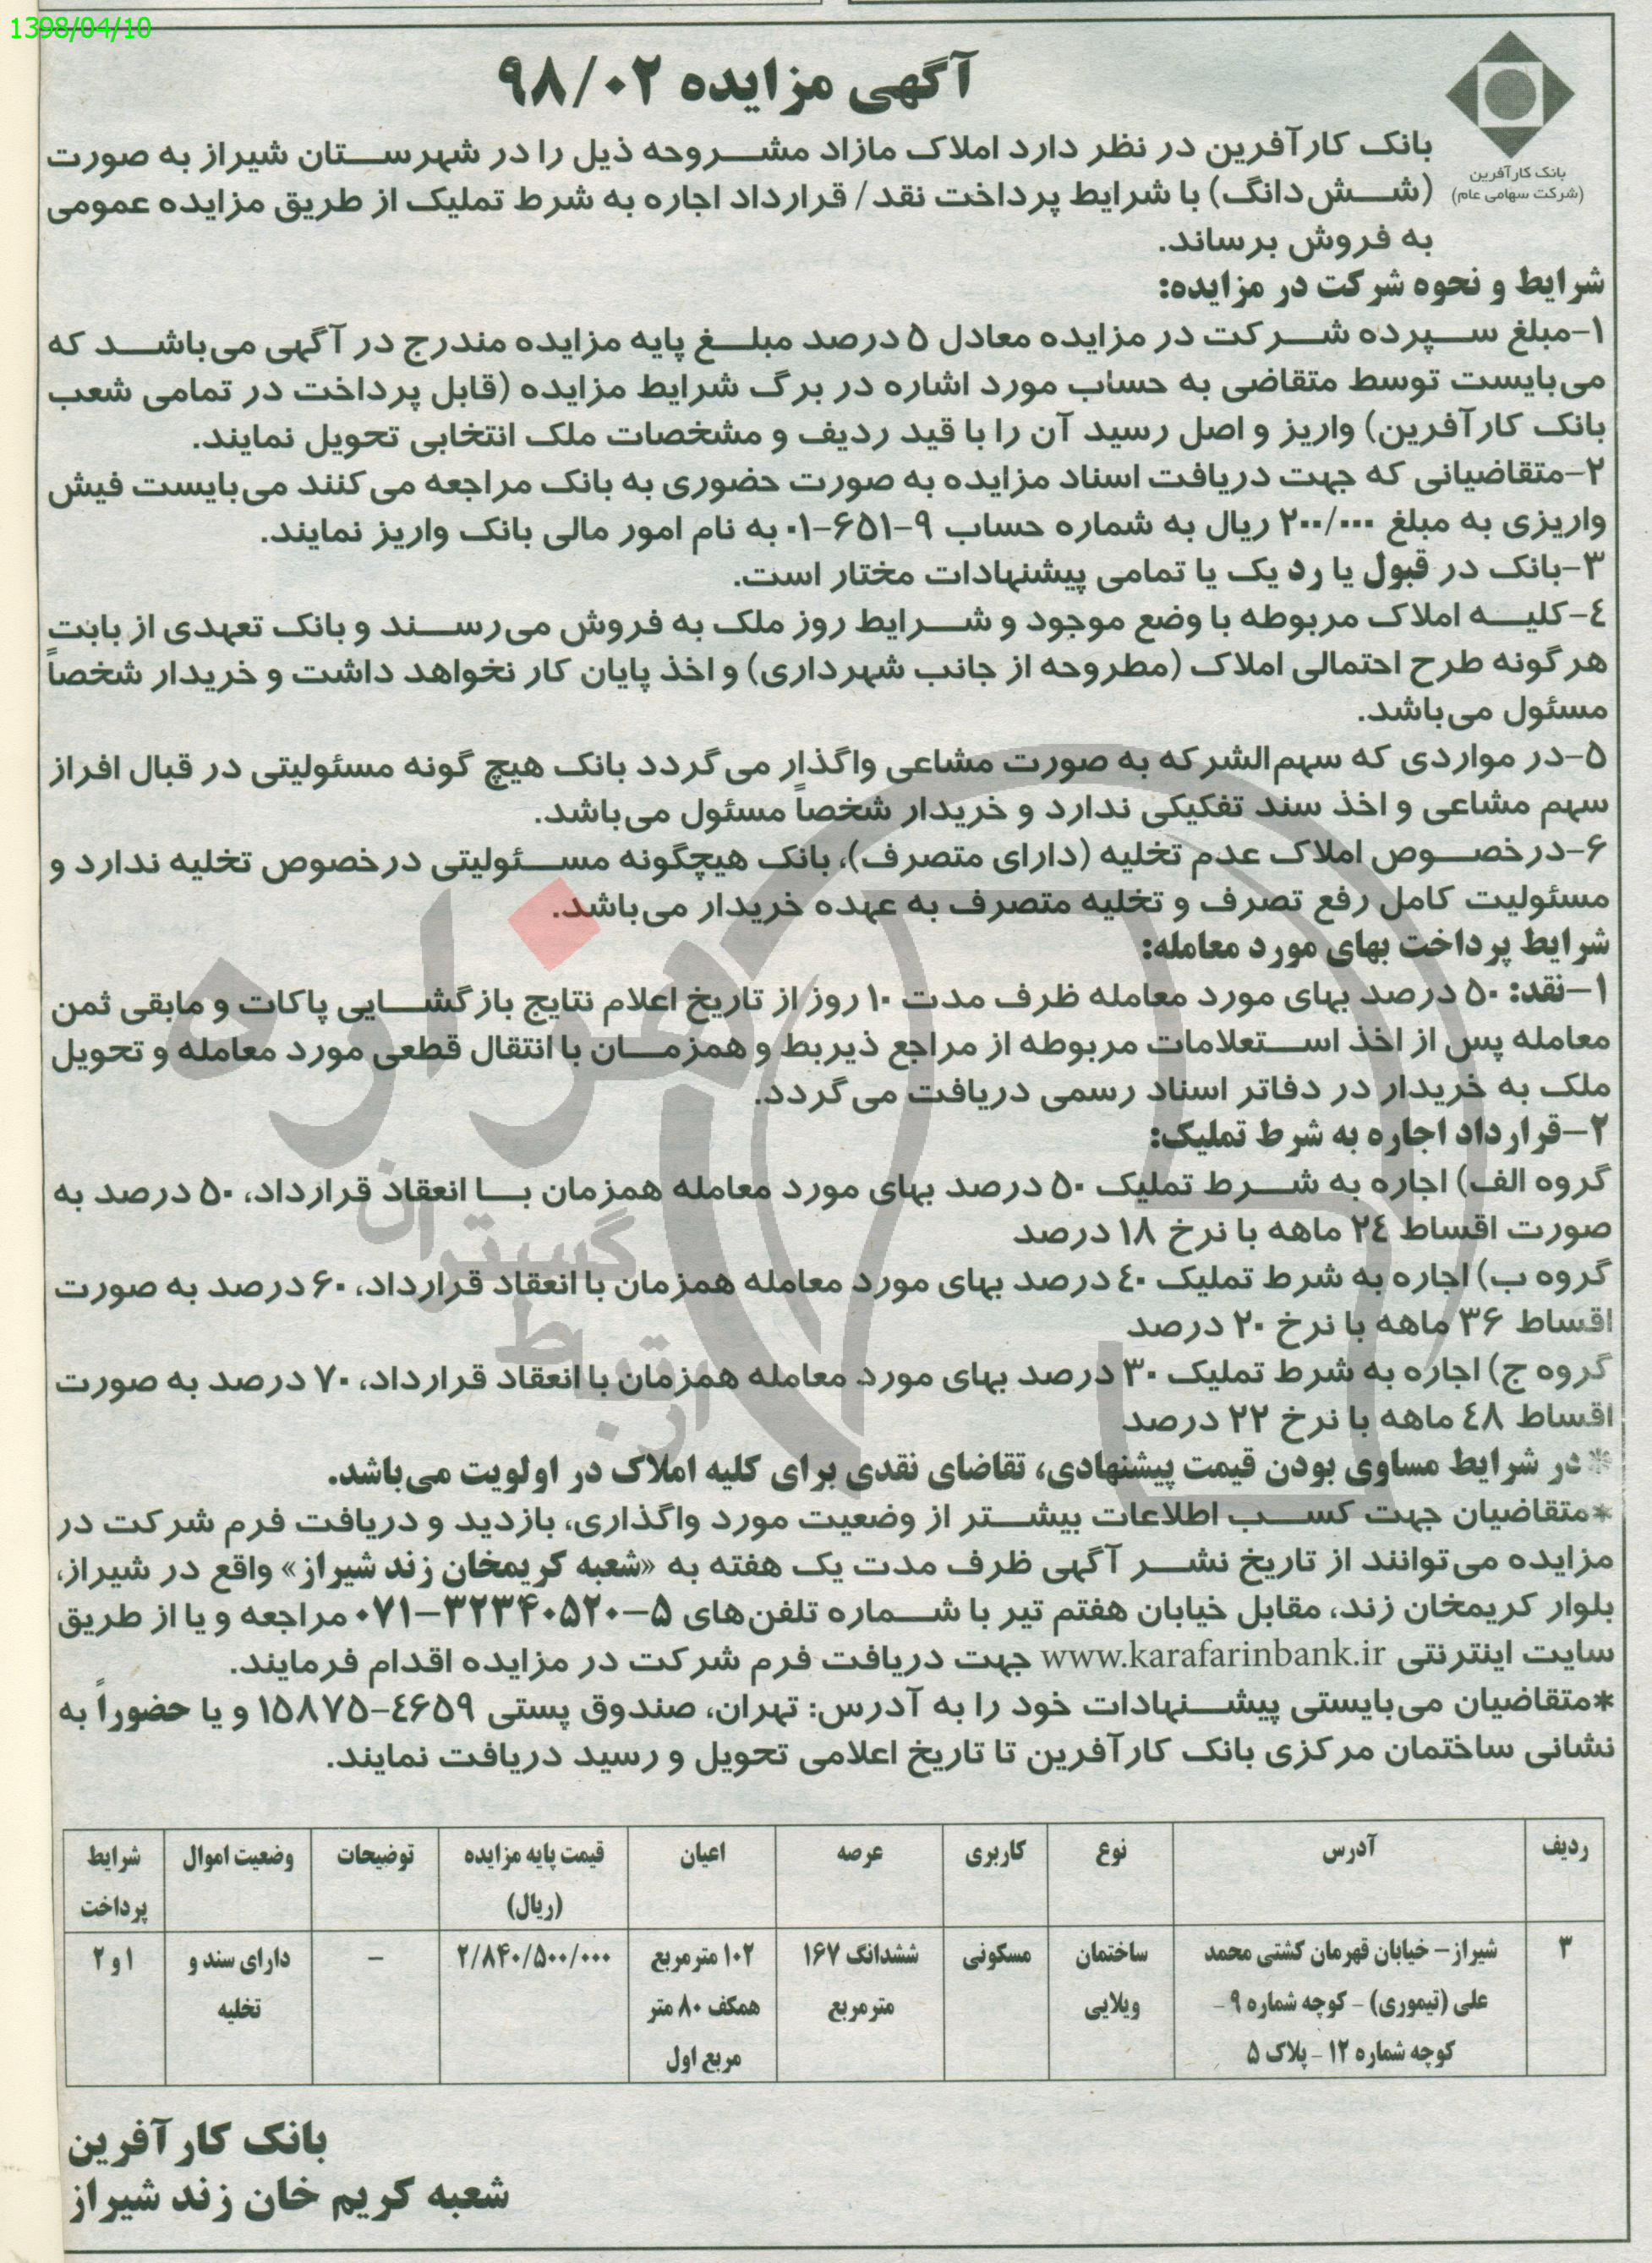 1398/04/10
آگهی مزایده ۹۸/۰۲
بانک کارآفرین
(شرکت سهامی عام)
بانک کارآفرین در نظر دارد املاک مازاد مشروحه ذیل را در شهرستان شیراز به صورت
(شش‌دانگ) با شرایط پرداخت نقد/ قرارداد اجاره به شرط تملیک از طریق مزایده عمومی
به فروش برساند.
شرایط و نحوه شرکت در مزایده:
۱-مبلغ سپرده شرکت در مزایده معادل ۵ درصد مبلغ پایه مزایده مندرج در آگهی می‌باشد که
می‌بایست توسط متقاضی به حساب مورد اشاره در برگ شرایط مزایده (قابل پرداخت در تمامی شعب
بانک کارآفرین) واریز و اصل رسید آن را با قید ردیف و مشخصات ملک انتخابی تحویل نمایند.
۲-متقاضیانی که جهت دریافت اسناد مزایده به صورت حضوری به بانک مراجعه می‌کنند می‌بایست فیش
واریزی به مبلغ ۲۰۰/۰۰۰ ریال به شماره حساب ۹-۶۵۱-۰۱ به نام امور مالی بانک واریز نمایند.
۳-بانک در قبول یا رد یک یا تمامی پیشنهادات مختار است.
۴-کلیه املاک مربوطه با وضع موجود و شرایط روز ملک به فروش می‌رسند و بانک تعهدی از بابت
هرگونه طرح احتمالی املاک (مطروحه از جانب شهرداری) و اخذ پایان کار نخواهد داشت و خریدار شخصاً
مسئول می‌باشد.
۵-در مواردی که سهم‌الشرکه به صورت مشاعی واگذار می‌گردد بانک هیچ گونه مسئولیتی در قبال افراز
سهم مشاعی و اخذ سند تفکیکی ندارد و خریدار شخصاً مسئول می‌باشد.
۶-درخصوص املاک عدم تخلیه (دارای متصرف)، بانک هیچگونه مسئولیتی درخصوص تخلیه ندارد و
مسئولیت کامل رفع تصرف و تخلیه متصرف به عهده خریدار می‌باشد.
شرایط پرداخت بهای مورد معامله:
۱-نقد: ۵۰ درصد بهای مورد معامله ظرف مدت ۱۰ روز از تاریخ اعلام نتایج بازگشایی پاکات و مابقی ثمن
معامله پس از اخذ استعلامات مربوطه از مراجع ذیربط و همزمان با انتقال قطعی مورد معامله و تحویل
ملک به خریدار در دفاتر اسناد رسمی دریافت می‌گردد.
۲-قرارداد اجاره به شرط تملیک:
گروه الف) اجاره به شرط تملیک ۵۰ درصد بهای مورد معامله همزمان با انعقاد قرارداد، ۵۰ درصد به
صورت اقساط ۲۴ ماهه با نرخ ۱۸ درصد
گروه ب) اجاره به شرط تملیک ۴۰ درصد بهای مورد معامله همزمان با انعقاد قرارداد، ۶۰ درصد به صورت
اقساط ۳۶ ماهه با نرخ ۲۰ درصد
گروه ج) اجاره به شرط تملیک ۳۰ درصد بهای مورد معامله همزمان با انعقاد قرارداد، ۷۰ درصد به صورت
اقساط ۴۸ ماهه با نرخ ۲۲ درصد
*در شرایط مساوی بودن قیمت پیشنهادی، تقاضای نقدی برای کلیه املاک در اولویت می‌باشد.
*متقاضیان جهت کسب اطلاعات بیشتر از وضعیت مورد واگذاری، بازدید و دریافت فرم شرکت در
مزایده می‌توانند از تاریخ نشر آگهی ظرف مدت یک هفته به «شعبه کریمخان زند شیراز» واقع در شیراز،
بلوار کریمخان زند، مقابل خیابان هفتم تیر با شماره تلفن‌های ۵-۳۲۳۴۰۵۲۰-۰۷۱ مراجعه و یا از طریق
سایت اینترنتی www.karafarinbank.ir جهت دریافت فرم شرکت در مزایده اقدام فرمایند.
*متقاضیان می‌بایستی پیشنهادات خود را به آدرس: تهران، صندوق پستی ۴۶۵۹-۱۵۸۷۵ و یا حضوراً به
نشانی ساختمان مرکزی بانک کارآفرین تا تاریخ اعلامی تحویل و رسید دریافت نمایند.
ردیف آدرس نوع کاربری عرصه اعیان قیمت پایه مزایده توضیحات وضعیت اموال شرایط
(ریال) پرداخت
۳ شیراز- خیابان قهرمان کشتی محمد ساختمان مسکونی ششدانگ ۱۶۷ ۱۰۲ مترمربع ۲/۸۴۰/۵۰۰/۰۰۰ - دارای سند و ۱ و ۲
علی (تیموری) - کوچه شماره ۹ - ویلایی مترمربع همکف ۸۰ متر تخلیه
کوچه شماره ۱۲ - پلاک ۵ مربع اول
بانک کارآفرین
شعبه کریم خان زند شیراز
هزاره
گستران
ارتباط